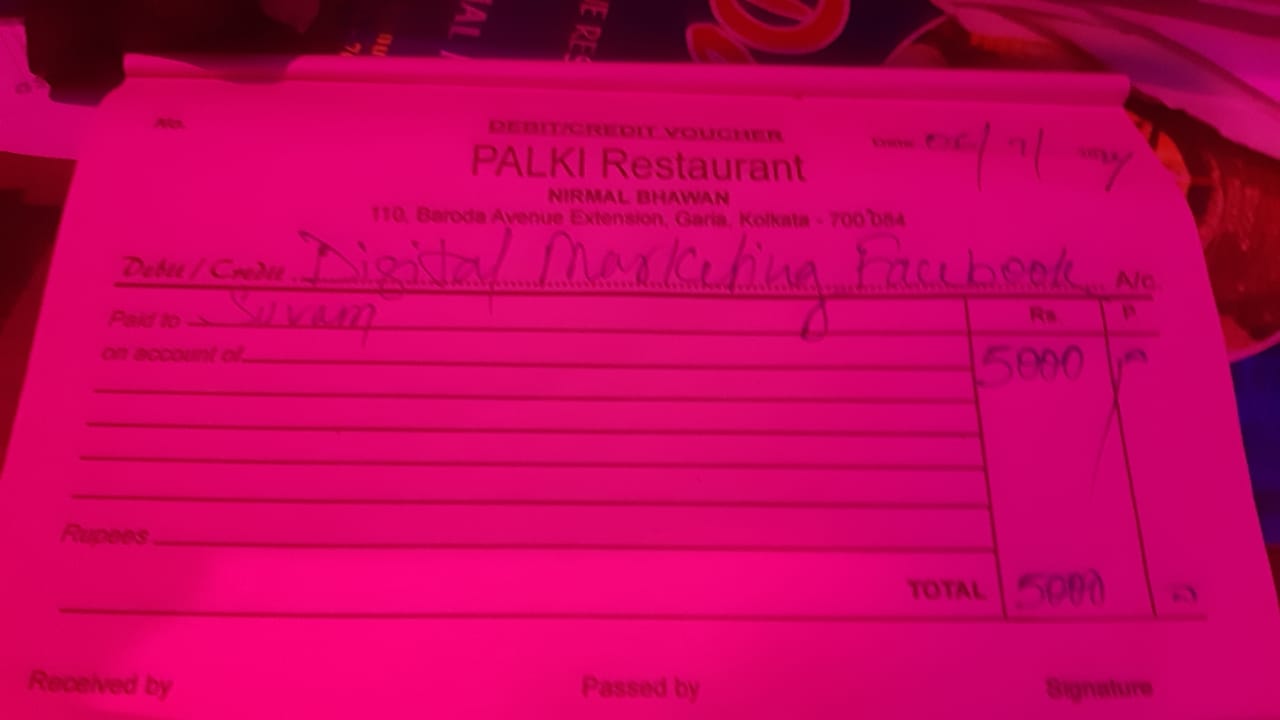 No.
DEBIT/CREDIT VOUCHER
PALKI Restaurant
NIRMAL BHAWAN
110, Baroda Avenue Extension, Garia, Kolkata - 700 084
Date 06/7/
Debit / Credit Digital Marketing Facebook A/c.
Paid to Suvam
Rs. P.
on account of 5000
Rupees
TOTAL 5000
Received by Passed by Signature